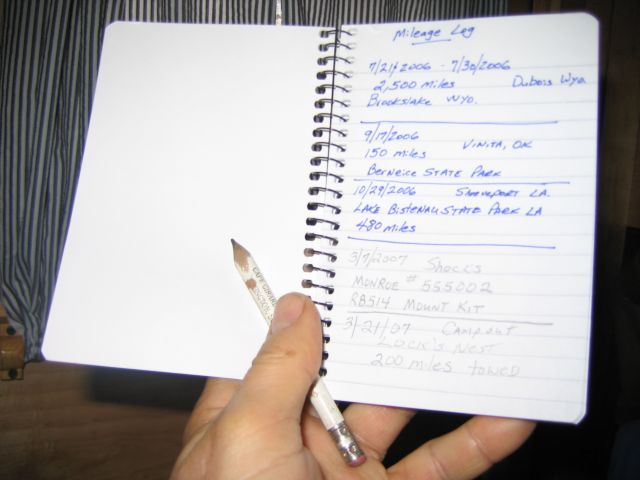 Mileage Log
7/21/2006 - 7/30/2006
2,500 miles Dubois Wyo.
Brookslake Wyo.
9/17/2006 Vinita, OK
150 miles
Berneice State Park
10/29/2006 Shreveport LA.
Lake Bistenau State Park LA
480 miles
3/7/2007 Shocks
Monroe # 555002
RB514 Mount Kit
3/21/07 Campout
Lock's Nest
200 miles towed